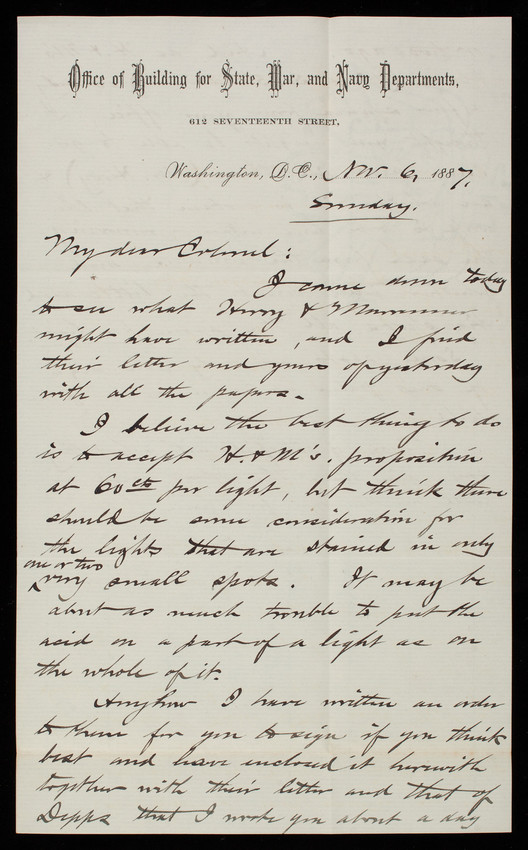 Office of Building for State, War, and Navy Departments,
612 SEVENTEENTH STREET,
Washington, D.C., Nov. 6, 1887.
Sunday.
My dear Colonel:
I came down today
to see what Henry &
might have written, and I find
their letter and yours of yesterday
with all the papers.
I believe the best thing to do
is to accept H. & M's. proposition
at 60 cts per light, but think there
should be some consideration for
the lights that are stained in only
one or two
very small spots. It may be
about as much trouble to put the
acid on a part of a light as on
the whole of it.
Anyhow I have written an order
to them for you to sign if you think
best and have enclosed it herewith
together with their letter and that of
Depps that I wrote you about a day